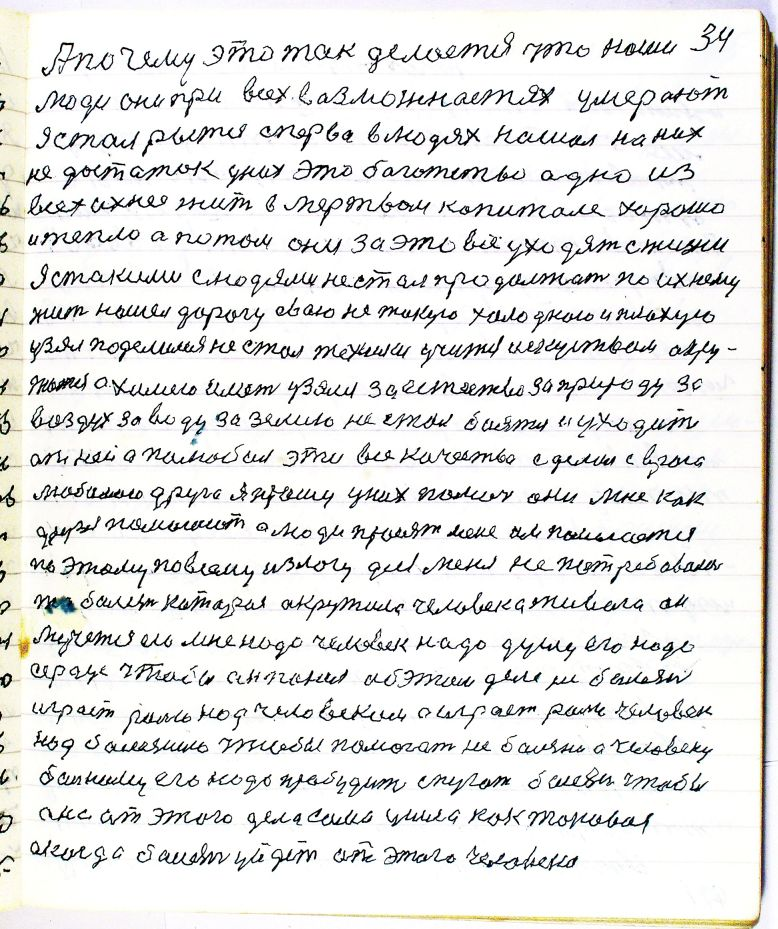 34
А почему это так делается что наши
люди они при всех возможностях умерают
я стал рытся сперва в людях нашол на них
не достаток у них это богатство адно из
всех ихнее жит в мертвом капитале хорошо
и тепло а потом они за это всё уходят с жизни
я стакими с людями не стал продолжат по ихнему
жит нашел дорогу сваю не такую холодною и плохую
узял поделился не стал техники учится искуством окру-
жатся а химию имет узял за естество за природу за
воздух за воду за землю не стал боятся и уходит
от ней а полюбил эти все качества сделал с врага
любимого друга я прошу у них помоч они мне как
друзя помогают а люди просят мене им
по этому по всему излогу для меня не потребавалас
та балезн катарая окружила человека живога он
мучется его мне надо человек надо душу его надо
сердце чтобы он понял об этом деле и балезн
играет ролю над человеком а играет ролю человек
над балезнию чтобы помогат не балезни а человеку
балному его надо пробудит спугат балезн чтобы
она от этого дела сама ушла как таковая
а когда балезн уйдет от этого человека